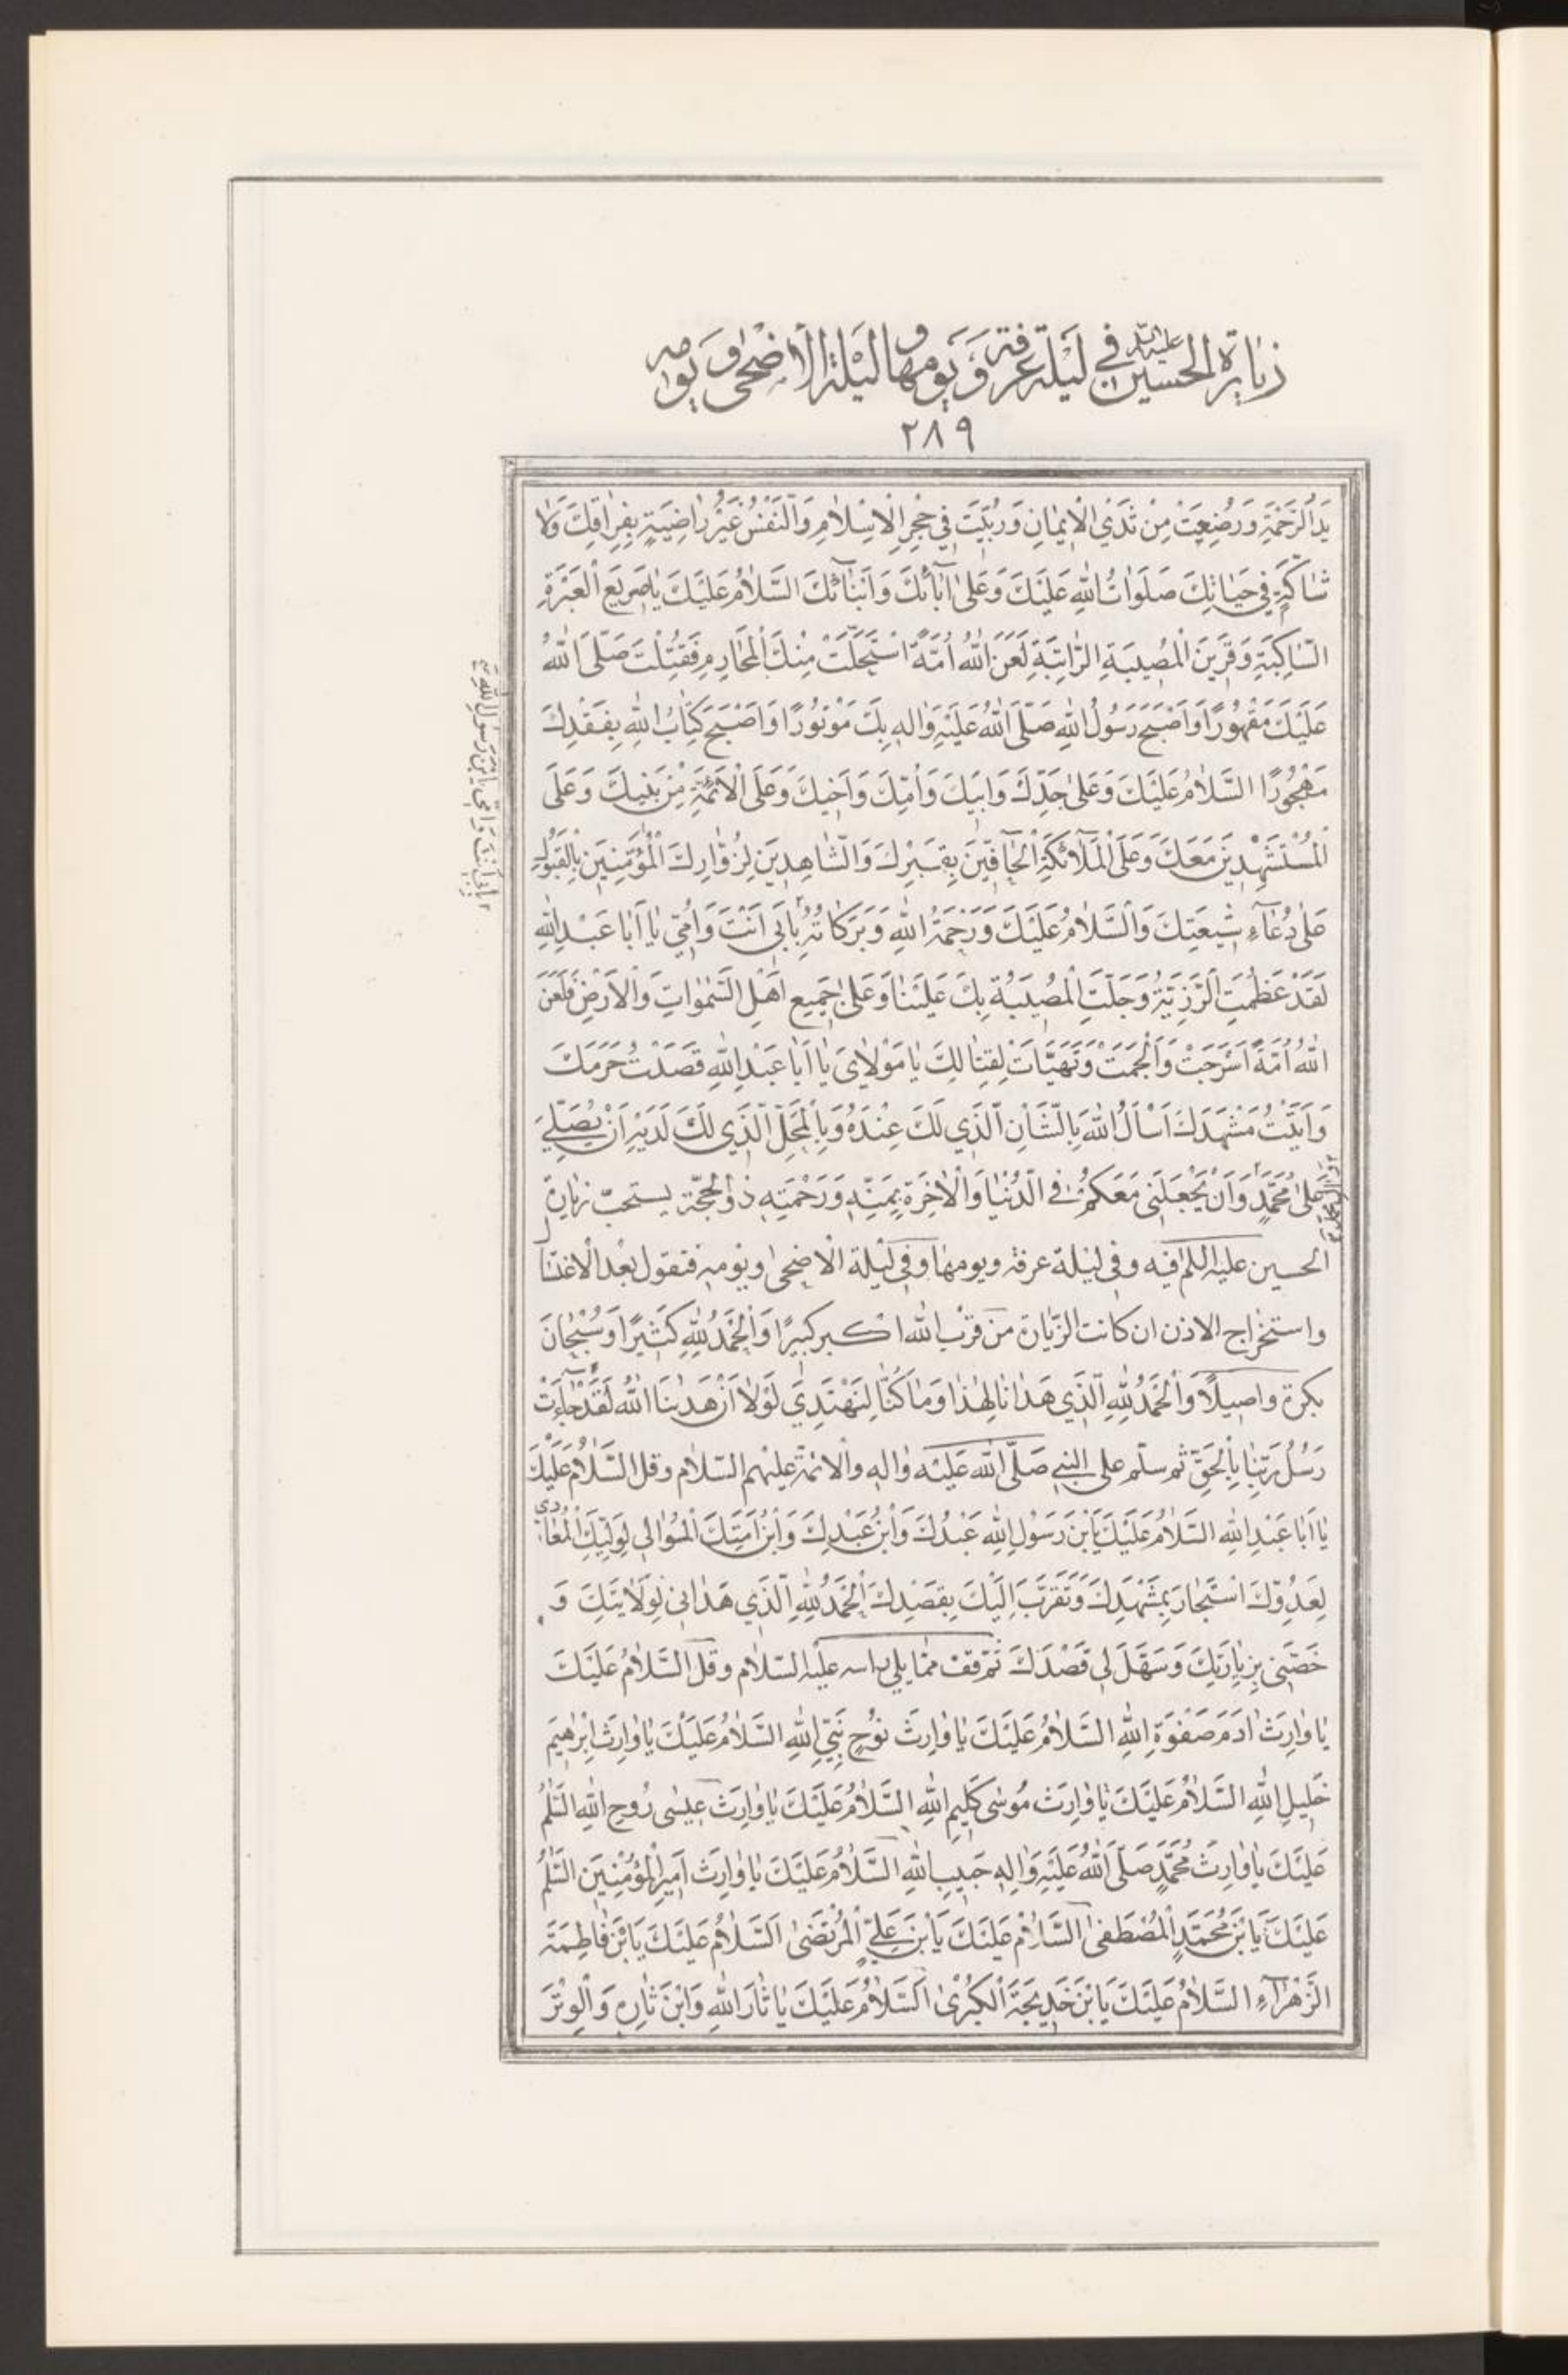 زيارة الحسين عليه السلام في ليلة عرفة ويومها وليلة الأضحى ويومه
٢٨٩
يَدُ الرَّحْمَةِ وَرُضِعْتَ مِنْ ثَدْيِ الْإِيمَانِ وَرُبِّيتَ فِي حِجْرِ الْإِسْلَامِ وَالنَّفْسُ غَيْرُ رَاضِيَةٍ بِفِرَاقِكَ وَلَا
شَاكَّةٍ فِي حَيَاتِكَ صَلَوَاتُ اللهِ عَلَيْكَ وَعَلَى آبَائِكَ وَأَبْنَائِكَ السَّلَامُ عَلَيْكَ يَا صَرِيعَ الْعَبْرَةِ
السَّاكِبَةِ وَقَرِينَ الْمُصِيبَةِ الرَّاتِبَةِ لَعَنَ اللهُ أُمَّةً اسْتَحَلَّتْ مِنْكَ الْمَحَارِمَ فَقُتِلْتَ صَلَّى اللهُ
عَلَيْكَ مَقْهُورًا وَأَصْبَحَ رَسُولُ اللهِ صَلَّى اللهُ عَلَيْهِ وَالِهِ بِكَ مَوْتُورًا وَأَصْبَحَ كِتَابُ اللهِ بِفَقْدِكَ
مَهْجُورًا السَّلَامُ عَلَيْكَ وَعَلَى جَدِّكَ وَأَبِيكَ وَأُمِّكَ وَأَخِيكَ وَعَلَى الْأَئِمَّةِ مِنْ بَنِيكَ وَعَلَى
الْمُسْتَشْهَدِينَ مَعَكَ وَعَلَى الْمَلَائِكَةِ الْحَافِّينَ بِقَبْرِكَ وَالشَّاهِدِينَ لِزُوَّارِكَ الْمُؤْمِنِينَ بِالْقَبُولِ
عَلَى دُعَاءِ شِيعَتِكَ وَالسَّلَامُ عَلَيْكَ وَرَحْمَةُ اللهِ وَبَرَكَاتُهُ بِأَبِي أَنْتَ وَأُمِّي يَا أَبَا عَبْدِ اللهِ
لَقَدْ عَظُمَتِ الرَّزِيَّةُ وَجَلَّتِ الْمُصِيبَةُ بِكَ عَلَيْنَا وَعَلَى جَمِيعِ أَهْلِ السَّمٰوَاتِ وَالْأَرْضِ فَلَعَنَ
اللهُ أُمَّةً أَسْرَجَتْ وَأَلْجَمَتْ وَتَهَيَّأَتْ لِقِتَالِكَ يَا مَوْلَايَ يَا أَبَا عَبْدِ اللهِ قَصَدْتُ حَرَمَكَ
وَأَتَيْتُ مَشْهَدَكَ أَسْأَلُ اللهَ بِالشَّأْنِ الَّذِي لَكَ عِنْدَهُ وَبِالْمَحَلِّ الَّذِي لَكَ لَدَيْهِ أَنْ يُصَلِّيَ
عَلَى مُحَمَّدٍ وَأَنْ يَجْعَلَنِي مَعَكُمْ فِي الدُّنْيَا وَالْآخِرَةِ بِمَنِّهِ وَرَحْمَتِهِ ذو الحجّة يستحبّ زيارة
الحسين عليه السلم فيه وفي ليلة عرفة ويومها وفي ليلة الأضحى ويومه فتقول بعد الاغتسا
واستخراج الاذن ان كانت الزّيارة من قرب الله اكبر كَبِيرًا وَالْحَمْدُ لِلّٰهِ كَثِيرًا وَسُبْحَانَ
بكرة واصيلًا وَالْحَمْدُ لِلّٰهِ الَّذِي هَدَانَا لِهٰذَا وَمَا كُنَّا لِنَهْتَدِيَ لَوْلَا أَنْ هَدٰينَا اللهُ لَقَدْ جَاءَتْ
رُسُلُ رَبِّنَا بِالْحَقِّ ثم سلّم على النبي صَلَّى اللهُ عَلَيْهِ وَالِهِ والائمّة عليهم السّلام وقل السَّلَامُ عَلَيْكَ
يَا أَبَا عَبْدِ اللهِ السَّلَامُ عَلَيْكَ يَابْنَ رَسُولِ اللهِ عَبْدُكَ وَابْنُ عَبْدِكَ وَابْنُ أَمَتِكَ الْمُوَالِي لِوَلِيِّكَ الْمُعَادِي
لِعَدُوِّكَ اسْتَجَارَ بِمَشْهَدِكَ وَتَقَرَّبَ إِلَيْكَ بِقَصْدِكَ الْحَمْدُ لِلّٰهِ الَّذِي هَدَانِي لِوِلَايَتِكَ وَ
خَصَّنِي بِزِيَارَتِكَ وَسَهَّلَ لِي قَصْدَكَ ثم قف ممّا يلي راسه عليه السّلام وقل السَّلَامُ عَلَيْكَ
يَا وَارِثَ ادَمَ صَفْوَةِ اللهِ السَّلَامُ عَلَيْكَ يَا وَارِثَ نُوحٍ نَبِيِّ اللهِ السَّلَامُ عَلَيْكَ يَا وَارِثَ إِبْرٰهِيمَ
خَلِيلِ اللهِ السَّلَامُ عَلَيْكَ يَا وَارِثَ مُوسَى كَلِيمِ اللهِ السَّلَامُ عَلَيْكَ يَا وَارِثَ عِيسَى رُوحِ اللهِ السَّلٰمُ
عَلَيْكَ يَا وَارِثَ مُحَمَّدٍ صَلَّى اللهُ عَلَيْهِ وَالِهِ حَبِيبِ اللهِ السَّلَامُ عَلَيْكَ يَا وَارِثَ أَمِيرِ الْمُؤْمِنِينَ السَّلٰمُ
عَلَيْكَ يَابْنَ مُحَمَّدٍ الْمُصْطَفَى السَّلَامُ عَلَيْكَ يَابْنَ عَلِيٍّ الْمُرْتَضَى السَّلَامُ عَلَيْكَ يَابْنَ فَاطِمَةَ
الزَّهْرَاءِ السَّلَامُ عَلَيْكَ يَابْنَ خَدِيجَةَ الْكُبْرٰى السَّلَامُ عَلَيْكَ يَا ثَارَ اللهِ وَابْنَ ثَارِهِ وَالْوِتْرَ
بأبي أنت وأمي يابن رسول الله